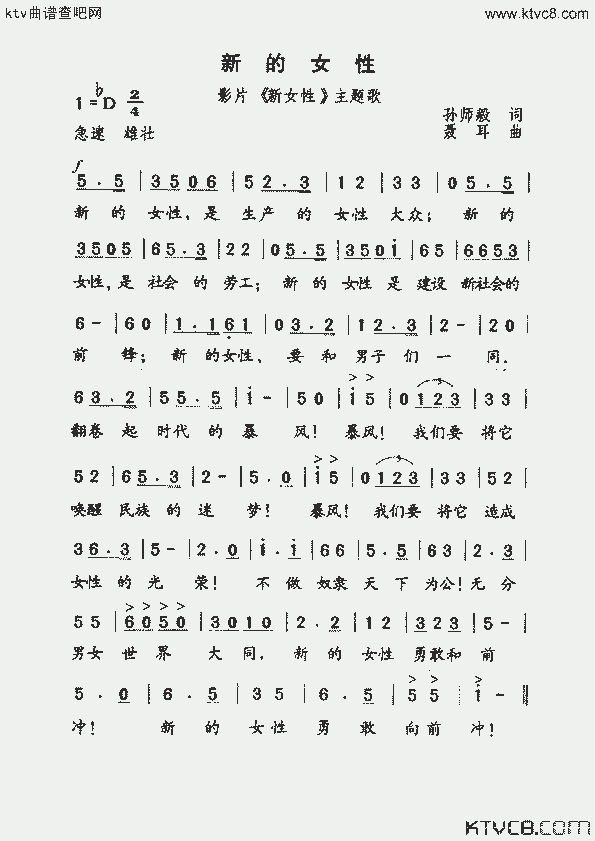 ktv曲谱查吧网
www.ktvc8.com
新的女性
影片《新女性》主题歌
1=♭D 2/4
孙师毅 词
急速 雄壮
聂耳 曲
f
5.5 | 3506 | 52.3 | 12 | 33 | 05.5 |
新的女性,是生产的女性大众;新的
3505 | 65.3 | 22 | 05.5 | 350i | 65 | 6653 |
女性,是社会的劳工;新的女性是建设新社会的
6- | 60 | 1.161 | 03.2 | 12.3 | 2- | 20 |
前锋;新的女性,要和男子们一同.
63.2 | 55.5 | i- | 50 | i5 | 0123 | 33 |
翻卷起时代的暴风!暴风!我们要将它
52 | 65.3 | 2- | 5.0 | i5 | 0123 | 33 | 52 |
唤醒民族的迷梦!暴风!我们要将它造成
36.3 | 5- | 2.0 | i.i | 66 | 5.5 | 63 | 2.3 |
女性的光荣!不做奴隶天下为公!无分
55 | 6050 | 3010 | 2.2 | 12 | 323 | 5- |
男女世界大同,新的女性勇敢和前
5.0 | 6.5 | 35 | 6.5 | 55 | i- ‖
冲!新的女性勇敢向前冲!
KTVC8.COM